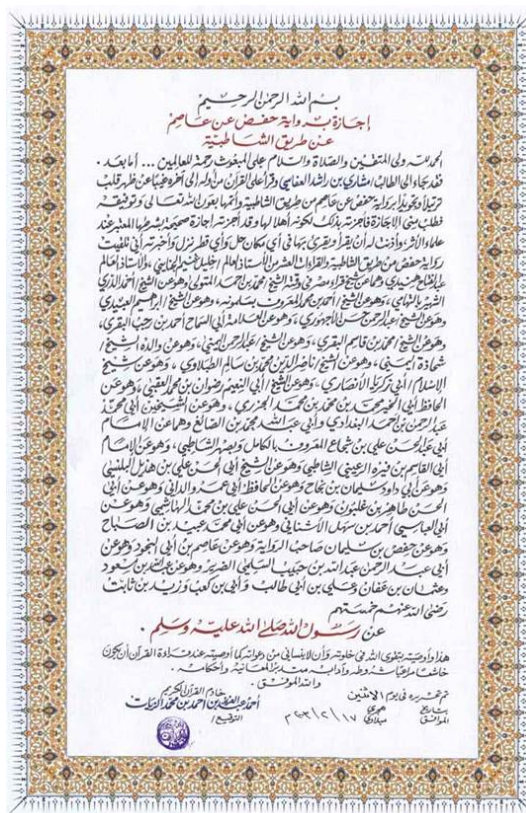 بسم الله الرحمن الرحيم
إجازة برواية حفص عن عاصم
عن طريق الشاطبية
الحمد لله ولي المتقين والصلاة والسلام على المبعوث رحمة للعالمين ... أما بعد .
فقد جاء إلى الطالب/مشاري بن راشد العفاسي وقرأ على القرآن من أوله إلى آخره غيبا عن ظهر قلب
ترتيلا وتجويدا برواية حفص عن عاصم من طريق الشاطبية وأتمها بعون الله تعالى وتوفيقه
فطلب مني الإجازة فأجزته بذلك لكونه أهلا لها وقد أجزته إجازة صحيحة بشرطها المعتبر عند
علماء الأثر وأذنت له أن يقرأ ويقرئ بها في أي مكان حل وأي قطر نزل وأخبرته أني تلقيت
رواية حفص من طريق الشاطبية والقراءات العشر من الأستاذ العالم/خليل الجنايني ، والأستاذ العالم
عبد الفتاح هنيدي وهما عن شيخ قراء مصر في وقته الشيخ/محمد بن أحمد المتولي وهو عن الشيخ أحمد الدري
الشهير بالتهامي ، وهو عن الشيخ/أحمد بن محمد المعروف بسلمونه، وهو عن الشيخ/إبراهيم العبيدي
وهو عن الشيخ/عبد الرحمن بن حسن الأجهوري ، وهو عن العلامة أبي السماح أحمد بن رجب البقري،
وهو عن الشيخ/محمد بن قاسم البقري ، وهو عن الشيخ/عبد الرحمن اليمني، وهو عن والده الشيخ/
شحاذة اليمني ، وهو عن الشيخ/ناصر الدين محمد بن سالم الطبلاوي ، وهو عن شيخ
الإسلام/أبي زكريا الأنصاري ، وهو عن الشيخ/أبي النعيم رضوان بن محمد العقبي ، وهو عن
الحافظ أبي الخير محمد بن محمد بن محمد الجزري ، وهو عن الشيخين أبي محمد
عبد الرحمن بن أحمد البغدادي وأبي عبد الله محمد بن الصائغ وهما عن الإمام
أبي عبد الحسن علي بن شجاع المعروف بالكامل وبصهر الشاطبي ، وهو عن الإمام
أبي القاسم بن فيره الرعيني الشاطبي وهو عن الشيخ أبي الحسن علي بن هذيل البلنسي
وهو عن أبي داود سليمان بن نجاح وهو عن الحافظ أبي عمرو الداني وهو عن أبي
الحسن طاهر بن غلبون وهو عن أبي الحسن علي بن محمد الهاشمي وهو عن
أبي العباس أحمد بن سهل الأشناني وهو عن أبي محمد عبيد بن الصباح
وهو عن حفص بن سليمان صاحب الرواية وهو عن عاصم بن أبي النجود وهو عن
أبي عبد الرحمن عبد الله بن حبيب السلمي الضرير وهو عن عبد الله بن مسعود
وعثمان بن عفان وعلي بن أبي طالب وأبي بن كعب وزيد بن ثابت
رضي الله عنهم خمستهم
عن رسول الله صلى الله عليه وسلم .
هذا وأوصيته بتقوى الله في خلوته وأن لا ينساني من دعواته كما أوصيته عند قراءة القرآن أن يكون
خاشعا مراعيا شروطه وآدابه متدبرا لمعانيه وأحكامه .
والله الموفق .
تم تحريره في يوم الاثنين
بتاريخ هجري
الموافق ميلادي
خادم القرآن الكريم
أحمد عبد العزيز بن أحمد بن محمد الزيات
التوقيع/